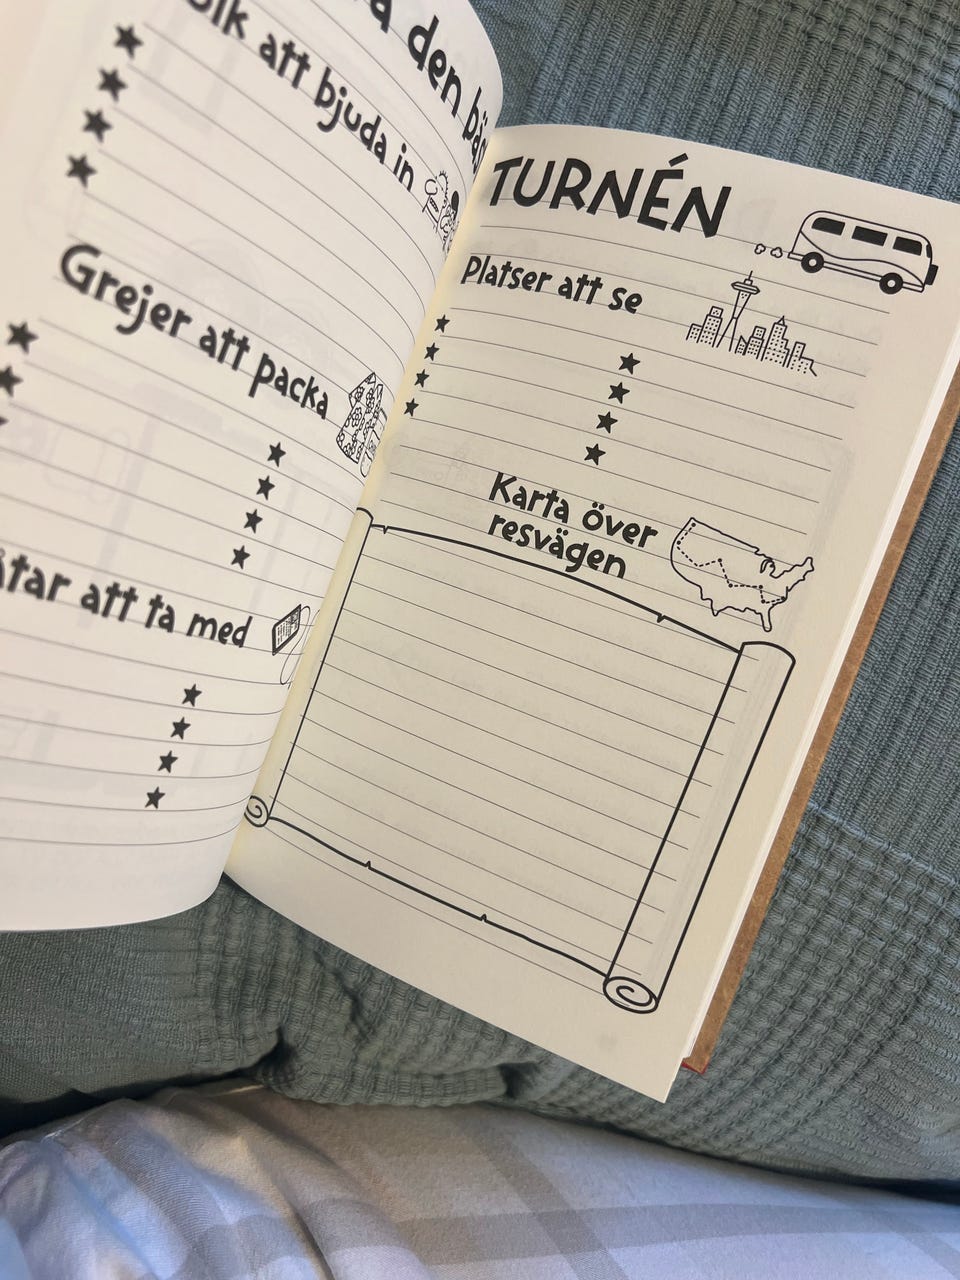 den
att bjuda in
Grejer att packa
att ta med
TURNÉN
Platser att se
Karta över
resvägen